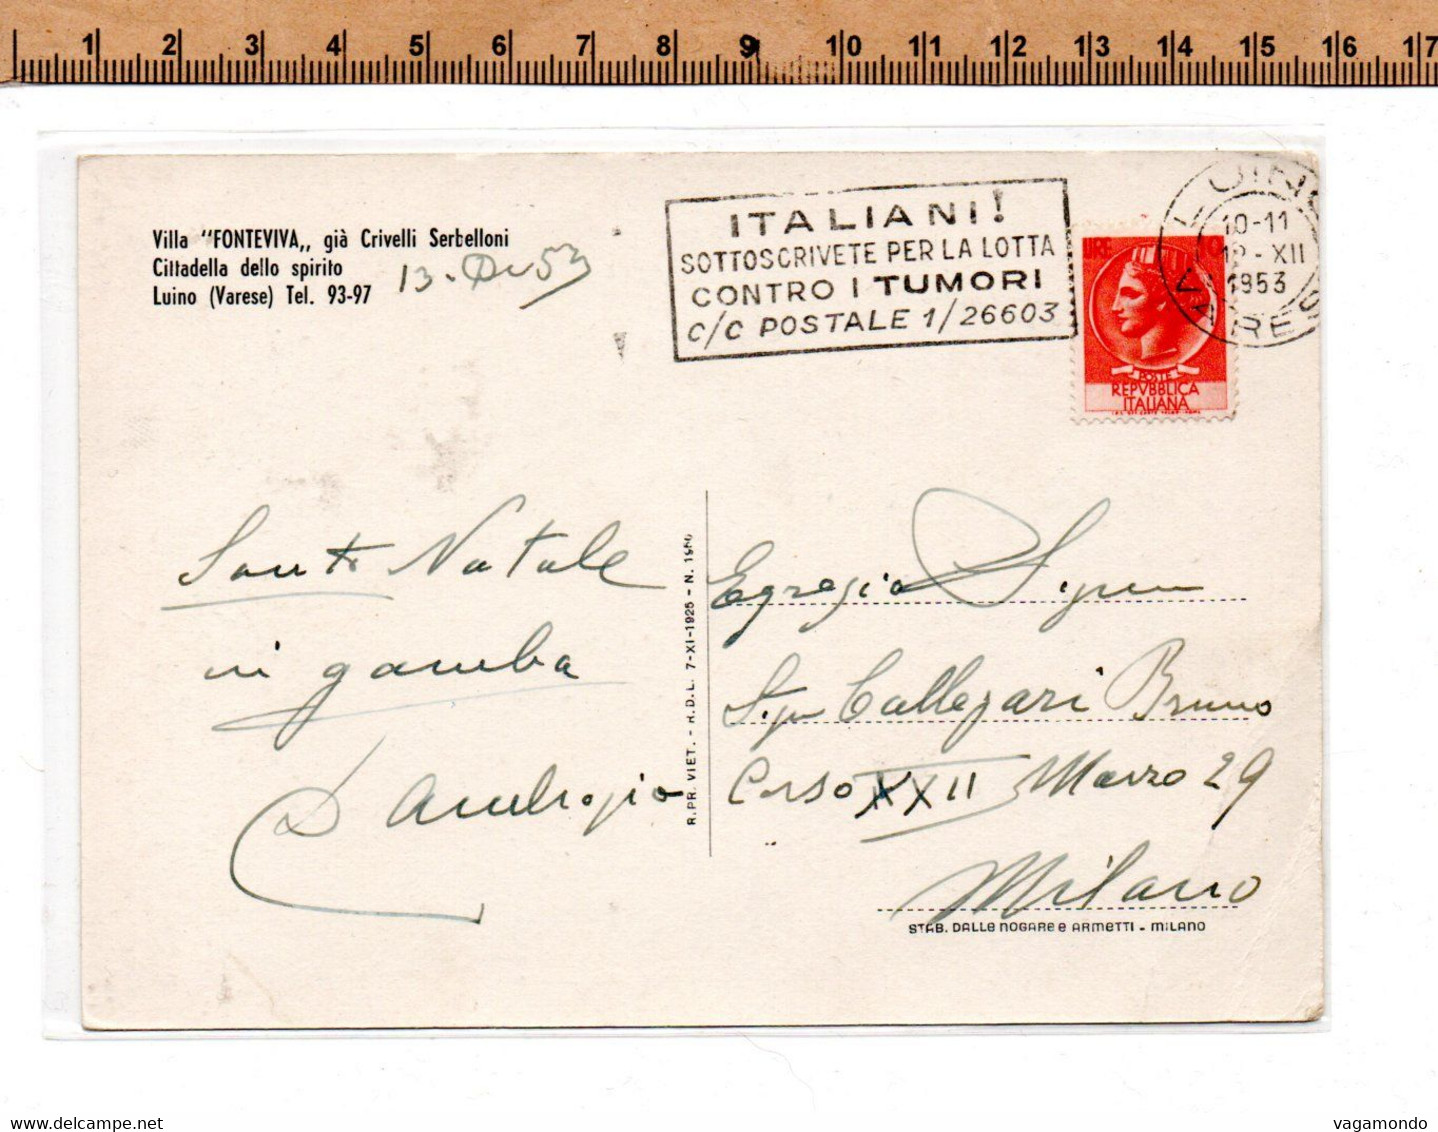 1 2 3 4 5 6 7 8 9 10 11 12 13 14 15 16 17
Villa "FONTEVIVA,, già Crivelli Serbelloni
Cittadella dello spirito
Luino (Varese) Tel. 93-97
13. Dic 53
ITALIANI!
SOTTOSCRIVETE PER LA LOTTA
CONTRO I TUMORI
C/C POSTALE 1/26603
LUINO
10-11
XII
1953
VARESE
LIRE 10
POSTE
REPVBBLICA
ITALIANA
Santo Natale
in gamba
D'Ambrogio
R. PR. VIET. - R.D.L. 7-XI-1925 - N. 19
Egregio Signor
Sign Callegari Bruno
Corso XXII Marzo 29
Milano
STAB. DALLE NOGARE E ARMETTI - MILANO
vagamondo